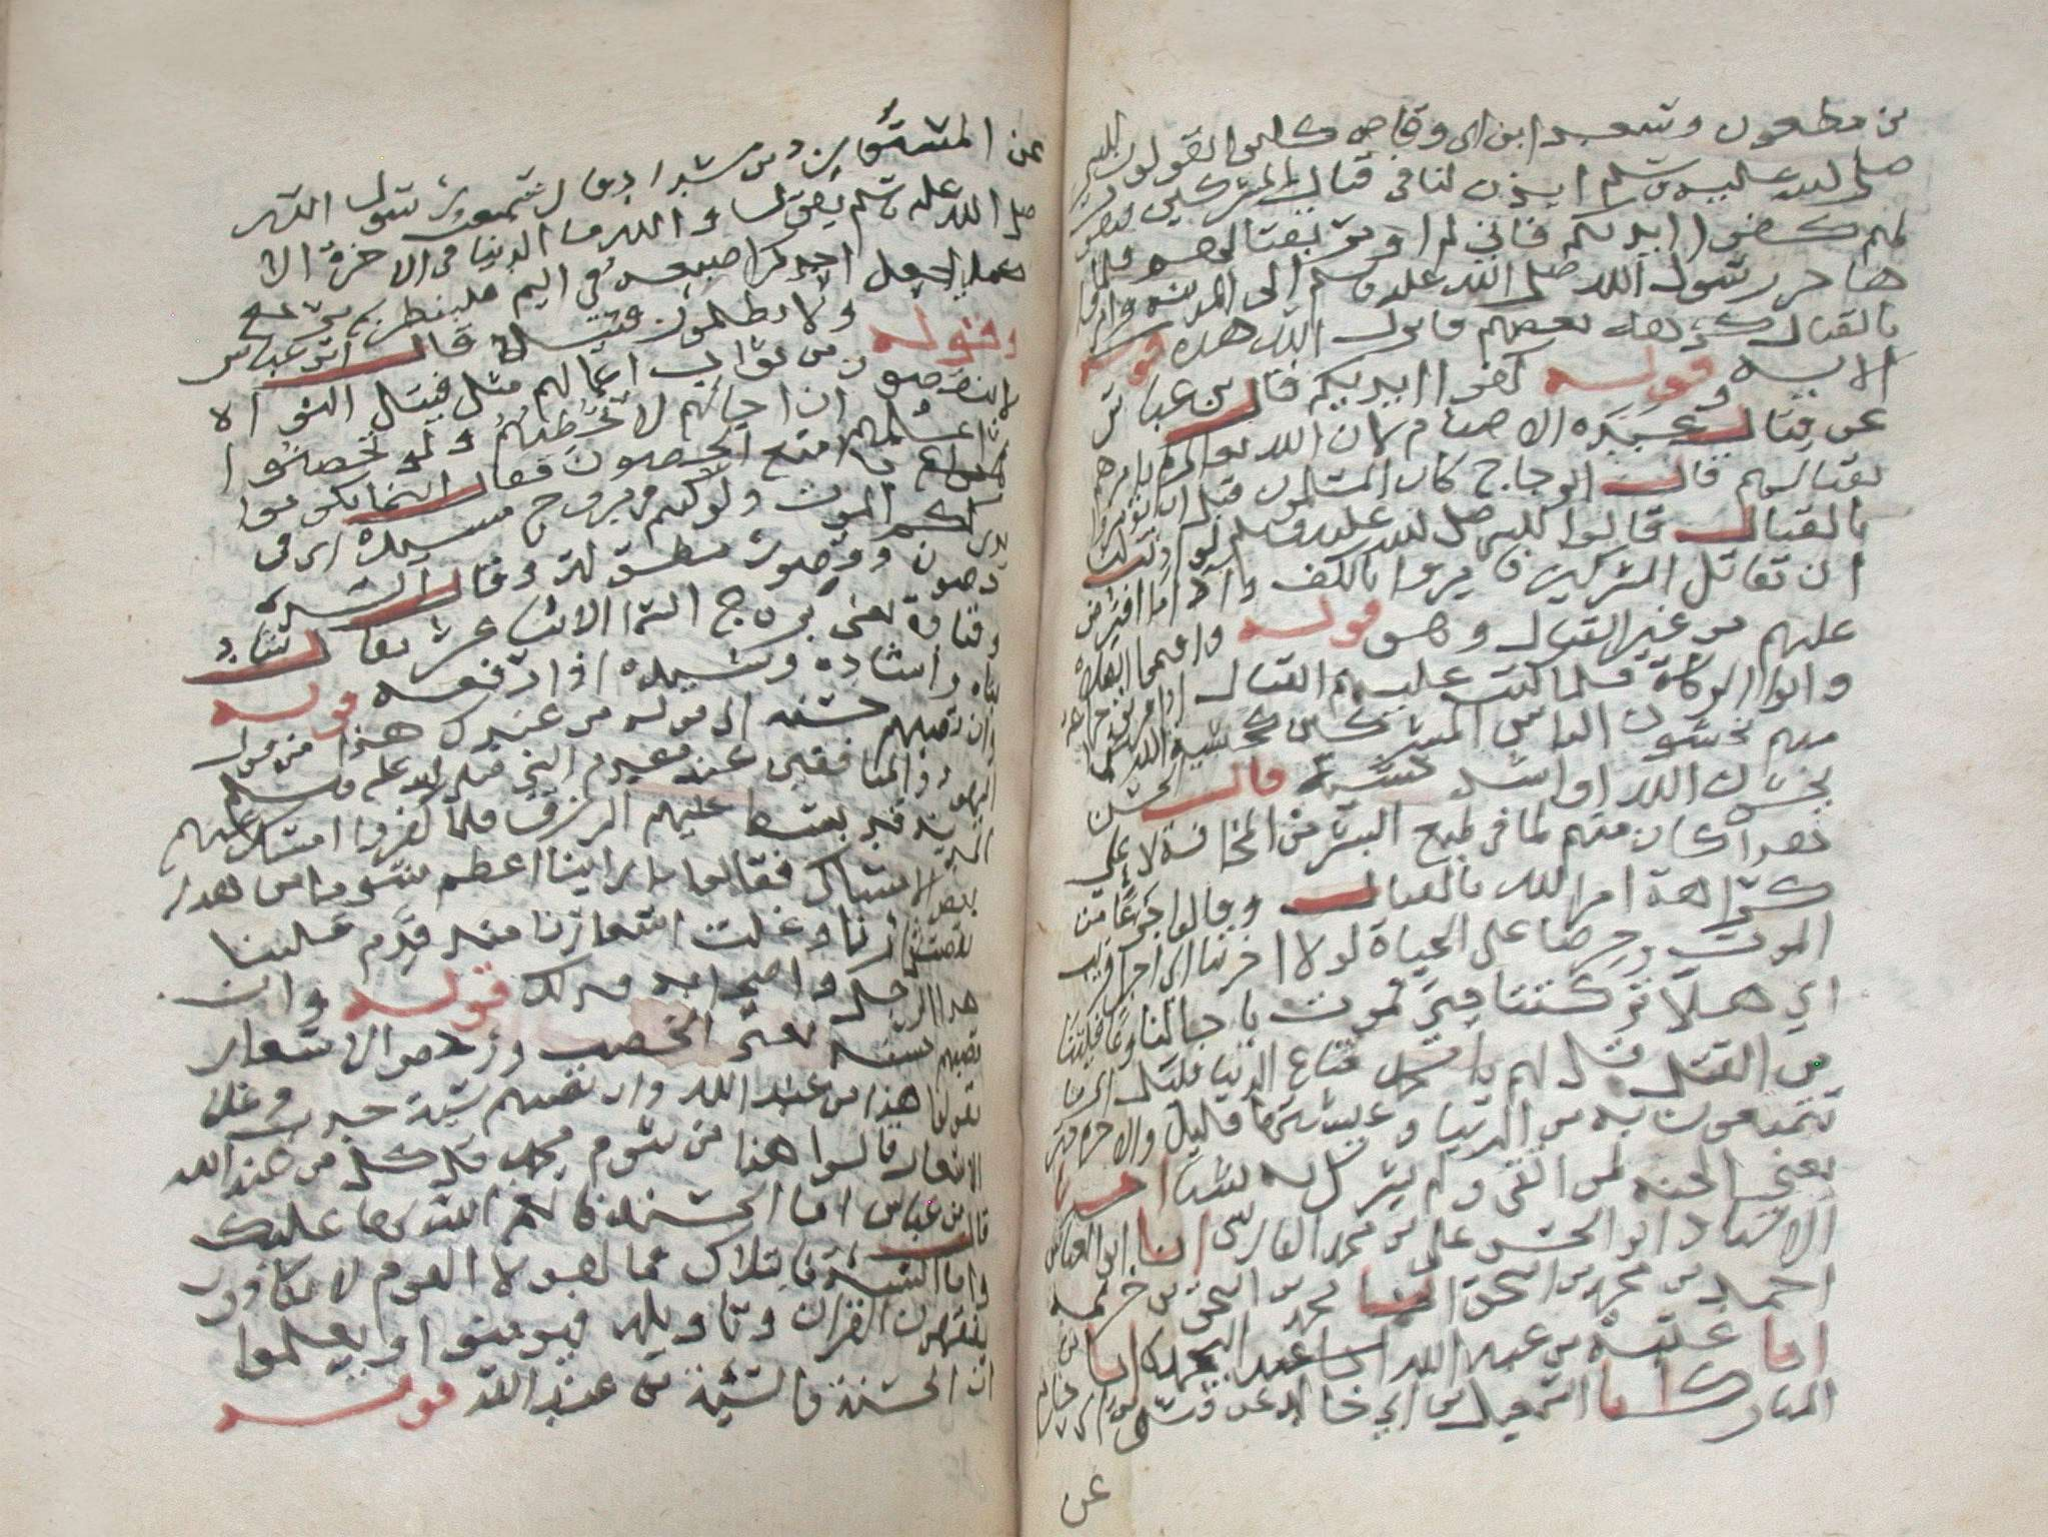 بن مظعون وسعد ابن ابى وقاص كانوا يقولون للنبى
صلى الله عليه وسلم ايذن لنا فى قتال المشركين فيقول
لهم كفوا ايديكم فانى لم اومر بقتالهم فلما
هاجر رسول الله صلى الله عليه وسلم الى المدينة وامروا
بالقتال كرهه بعضهم فانزل الله هذه
الايه قوله كفوا ايديكم قال بن عباس
عن قتال عبدة الاصنام لان الله تعالى لم يامرهم
بقتالهم قال الزجاج كان المسلمون قبل ان يومروا
بالقتال قالوا للنبى صلى الله عليه وسلم لو اذنت لنا
ان نقاتل المشركين فامروا بالكف واداء ما افترض
عليهم من غير القتال وهو قوله واقيموا الصلاة
واتوا الزكاة فلما كتب عليهم القتال اذا فريق
منهم يخشون الناس المشركين كخشية الله كما
يخشون الله او اشد خشية قال الحسن
هذا كان منهم لما فى طبع البشر من المخافة لا على
كراهة امر الله بالقتال وقالوا جزعا من
الموت وحرصا على الحياة لولا اخرتنا الى اجل قريب
اى هلا تركتنا حتى نموت باجالنا وعافيتنا
من القتل قل لهم يا محمد متاع الدنيا قليل اى ما
تتمتعون به من الدنيا وعيشتها قليل والاخرة خير
يعنى الجنة لمن اتقى ولم يشرك به شيئا اخبرنا
الاستاذ ابو الحسن على بن محمد الفارسى انا ابو العباس
احمد بن محمد بن اسحق انبا محمد بن اسحق بن خزيمه
انا عتبة بن عبد الله انا بن
المبارك انا اسمعيل بن ابى خالد عن قيس بن ابى حازم
عن
عن المستورد بن شداد قال سمعت رسول الله
صلى الله عليه وسلم يقول والله ما الدنيا فى الاخرة الا
كما يجعل احدكم اصبعه فى اليم فلينظر بم يرجع
وقوله ولا يظلمون فتيلا قال ابن عباس
لا ينقصون من ثواب اعمالهم مثل فتيل النواة
ثم اعلمهم ان اجالهم لا تخطئهم ولو تحصنوا
بامنع الحصون فقال اينما تكونوا
يدرككم الموت ولو كنتم فى بروج مشيدة اى فى
حصون وقصور مطولة وقال السدى
وقتادة يعنى بروج السما الاثنا عشر يقال شاد
بناه واشاده وشيده اذا رفعه قوله
وان تصبهم حسنة الى قوله من عندك هذا من قول
اليهود والمنافقين عند مقدم النبى صلى الله عليه وسلم
المدينة قد بسط عليهم الرزق فلما كفروا امسك عليهم
بعض الامساك فقالوا ما راينا اعظم شوما من هذا
نقصت ثمارنا وغلت اسعارنا منذ قدم علينا
هذا الرجل واصحابه فذلك قوله وان
تصبهم حسنة يعنى الخصب ورخص الاسعار
يقولوا هذا من عند الله وان تصبهم سيئة جدب وغلا
الاسعار قالوا هذا من شوم محمد قل كل من عند الله
قال بن عباس اما الحسنة فانعم الله بها عليك
واما السيئة فابتلاك فما لهولا القوم لا يكادون
يفقهون القران وتاويله فيومنوا او يعلموا
ان الحسنة والسيئة من عند الله قوله